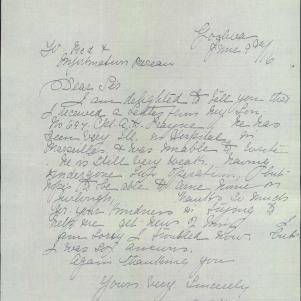 June 9th
/16
To Red X
Information Bureau
Dear Sir
I am delighted to tell you that
I received a letter from my Son
No 694 A. H. he has
been very ill in Hospital in
Marseilles & was unable to write
He is still very weak having
undergone two operations, but
hopes to be able to come home on
Furlough. Thanks so much
for your kindness in trying to
help me get news of him. I
am sorry I troubled you. But
I was so anxious.
Again thanking you
Yours Very Sincerely